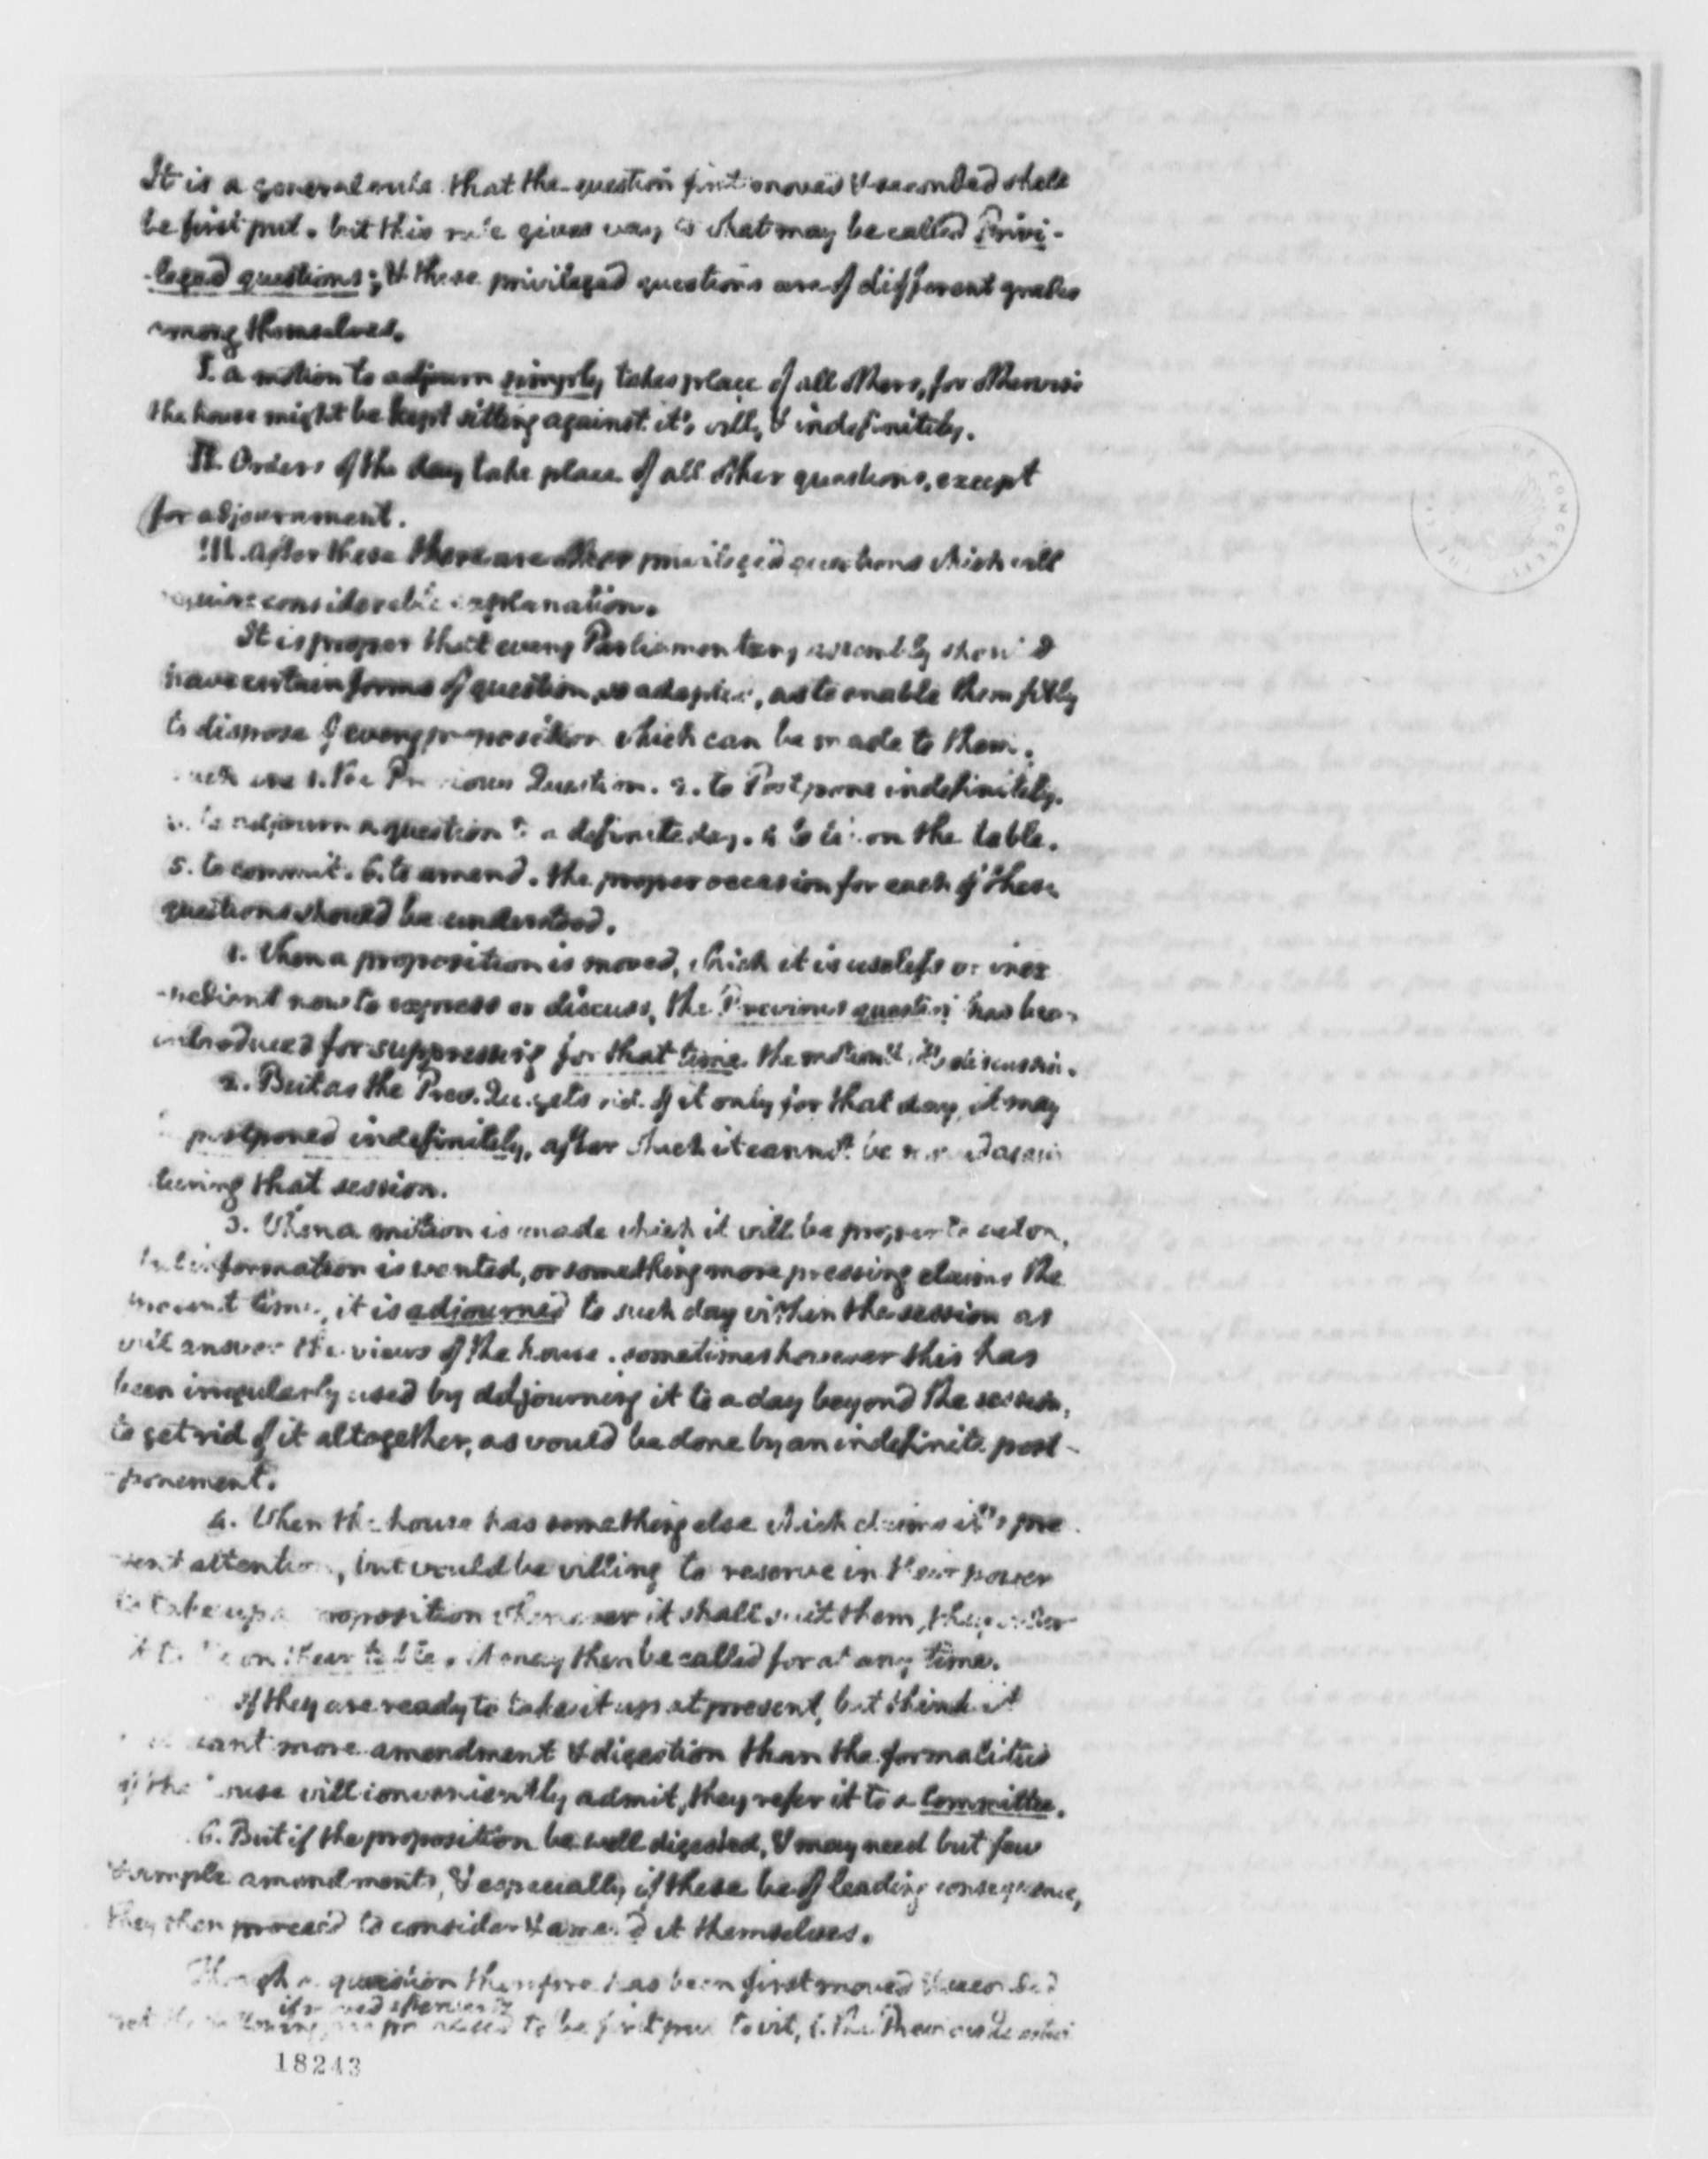 It is a general rule that the question first moved & seconded shall
be first put. but this rule gives way to what may be called Privi-
-leged questions; & these privileged questions are of different grades
among themselves.
I. a motion to adjourn simply, takes place of all others, for otherwise
the house might be kept sitting against it's will, & indefinitely.
II. Orders of the day take place of all other questions, except
for adjournment.
III. After these there are other privileged questions which will
require considerable explanation.
It is proper that every Parliamentary assembly should
have certain forms of question, so adapted, as to enable them fitly
to dispose of every proposition which can be made to them.
such are 1. The Previous Question. 2. to Postpone indefinitely.
3. to adjourn a question to a definite day. 4. to lie on the table.
5. to commit. 6. to amend. the proper occasion for each of these
questions should be understood.
1. When a proposition is moved, which it is useless or inex
-pedient now to express or discuss, the Previous question has been
introduced for suppressing for that time the motion & it's discussion.
2. But as the Prev. Qu. gets rid of it only for that day, it may
be postponed indefinitely, after which it cannot be moved again
during that session.
3. When a motion is made which it will be proper to act on,
but information is wanted, or something more pressing claims the
present time, it is adjourned to such day within the session as
will answer the views of the house. sometimes however this has
been irregularly used by adjourning it to a day beyond the session,
to get rid of it altogether, as would be done by an indefinite post-
-ponement.
4. When the house has something else which claims it's pre
-sent attention, but would be willing to reserve in their power
to take up a proposition whenever it shall suit them, they order
it to lie on their table. it may then be called for at any time.
if they are ready to take it up at present, but think it
may want more amendment & digestion than the formalities
of the house will conveniently admit, they refer it to a Committee.
6. But if the proposition be well digested, & may need but few
& simple amendments, & especially if these be of leading consequence,
they then proceed to consider & amend it themselves.
Though a question therefore has been first moved & seconded
if moved afterwards
yet the following are privileged to be first put to wit, 1. The Previous Question
18243